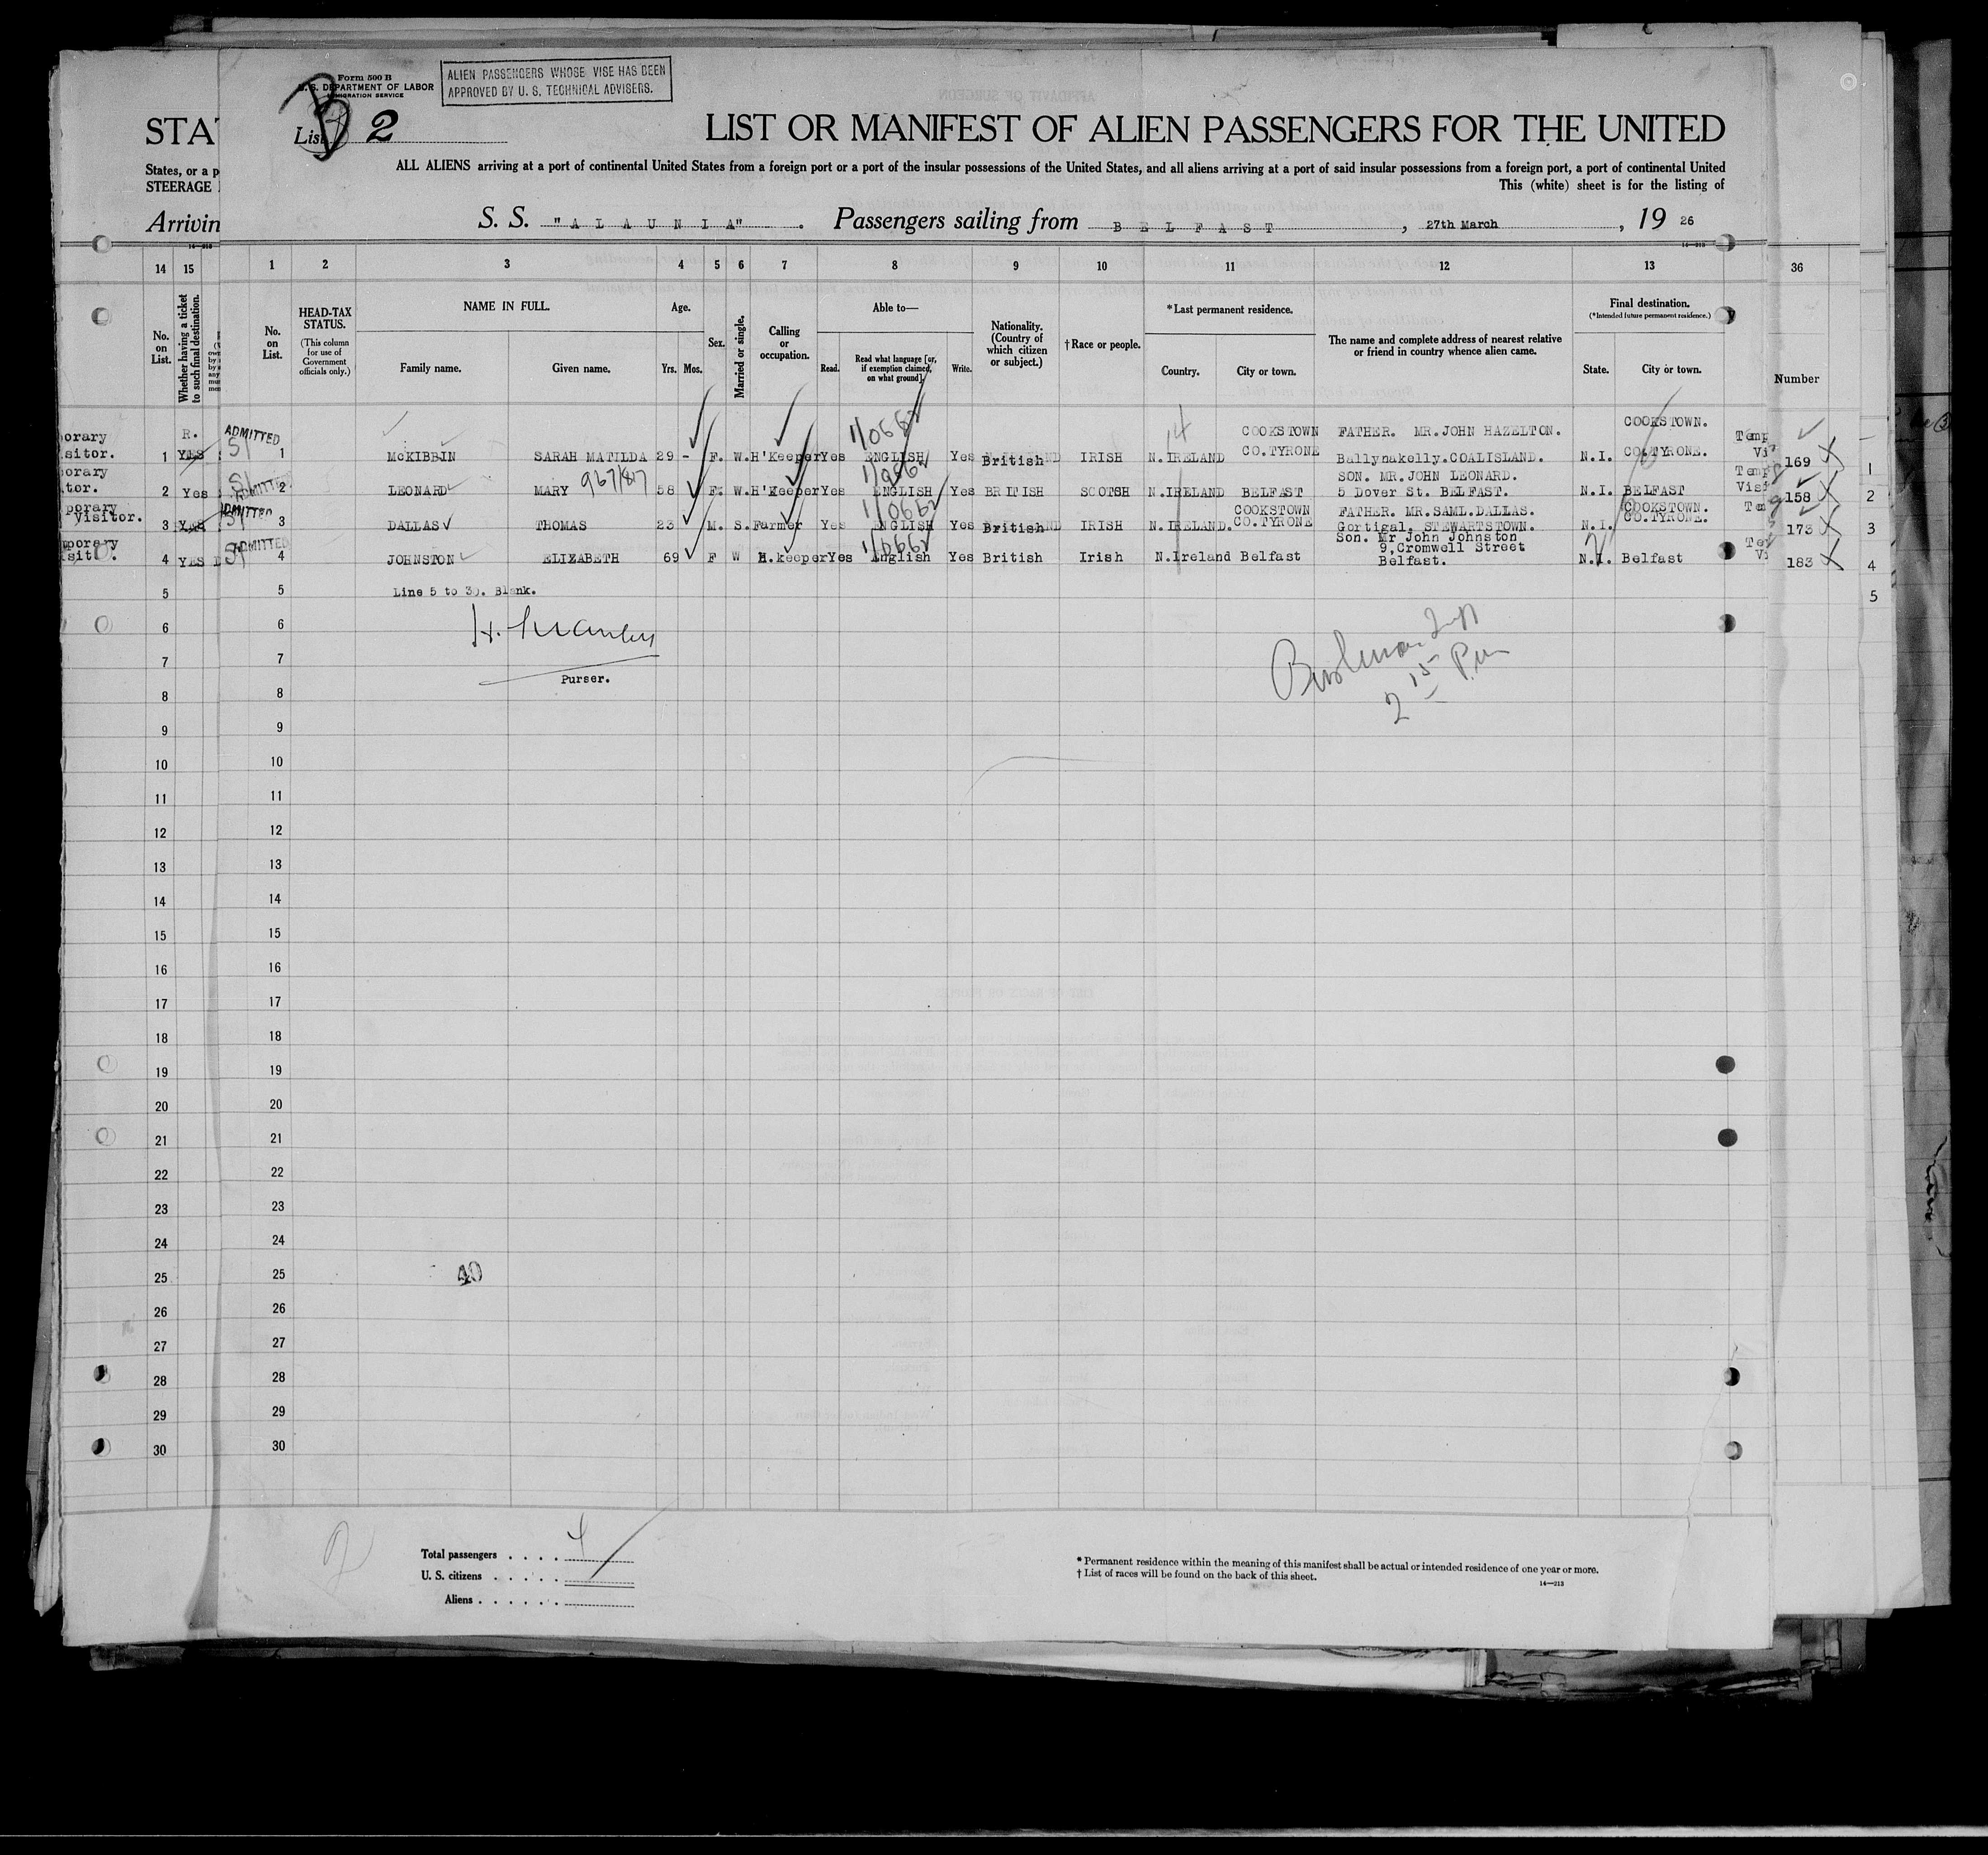 Form 500 B
U. S. DEPARTMENT OF LABOR
IMMIGRATION SERVICE
ALIEN PASSENGERS WHOSE VISE HAS BEEN
APPROVED BY U. S. TECHNICAL ADVISERS.
B
List 2
LIST OR MANIFEST OF ALIEN PASSENGERS FOR THE UNITED
STA
ALL ALIENS arriving at a port of continental United States from a foreign port or a port of the insular possessions of the United States, and all aliens arriving at a port of said insular possessions from a foreign port, a port of continental United
This (white) sheet is for the listing of
States, or a p
STEERAGE
Arrivin
S. S. "ALAUNIA". Passengers sailing from BELFAST, 27th March, 19 26
14 15 1 2 3 4 5 6 7 8 9 10 11 12 13 36
No. on List.
Whether having a ticket to such final destination.
No. on List.
HEAD-TAX STATUS.
(This column for use of Government officials only.)
NAME IN FULL.
Family name. Given name.
Age.
Yrs. Mos.
Sex.
Married or single.
Calling or occupation.
Able to—
Read. Read what language [or, if exemption claimed, on what ground]. Write.
Nationality. (Country of which citizen or subject.)
†Race or people.
*Last permanent residence.
Country. City or town.
The name and complete address of nearest relative or friend in country whence alien came.
Final destination.
(*Intended future permanent residence.)
State. City or town.
Number
orary R. ADMITTED COOKSTOWN FATHER. MR.JOHN HAZELTON. COOKSTOWN. Temp
sitor. 1 YES 1 McKIBBIN SARAH MATILDA 29 - F. W. H'Keeper Yes ENGLISH Yes British IRISH N.IRELAND CO.TYRONE Ballynakelly.COALISLAND. N.I. CO.TYRONE. Vi 169 1
orary ADMITTED 967/817 SON. MR.JOHN LEONARD. Temp
tor. 2 Yes 2 LEONARD MARY 58 F. W. H'Keeper Yes ENGLISH Yes BRITISH SCOTSH N.IRELAND BELFAST 5 Dover St. BELFAST. N.I. BELFAST Visi 158 2
porary ADMITTED COOKSTOWN FATHER. MR.SAML.DALLAS. COOKSTOWN. Tem
Visitor. 3 YES 3 DALLAS THOMAS 23 M. S. Farmer Yes ENGLISH Yes British IRISH N.IRELAND. CO.TYRONE Gortigal, STEWARTSTOWN. N.I. CO.TYRONE. 173 3
mporary ADMITTED Son. Mr John Johnston
9,Cromwell Street
4 YES 4 JOHNSTON ELIZABETH 69 F W H.keeper Yes English Yes British Irish N.Ireland Belfast Belfast. N.I. Belfast Vi 183 4
5 5 Line 5 to 30. Blank. 5
6 6
7 7
Purser.
8 8
9 9
10 10
11 11
12 12
13 13
14 14
15 15
16 16
17 17
18 18
19 19
20 20
21 21
22 22
23 23
24 24
25 25 40
26 26
27 27
28 28
29 29
30 30
Total passengers . . . . 4
U. S. citizens . . . . .
Aliens . . . . . .
* Permanent residence within the meaning of this manifest shall be actual or intended residence of one year or more.
† List of races will be found on the back of this sheet.
14—213